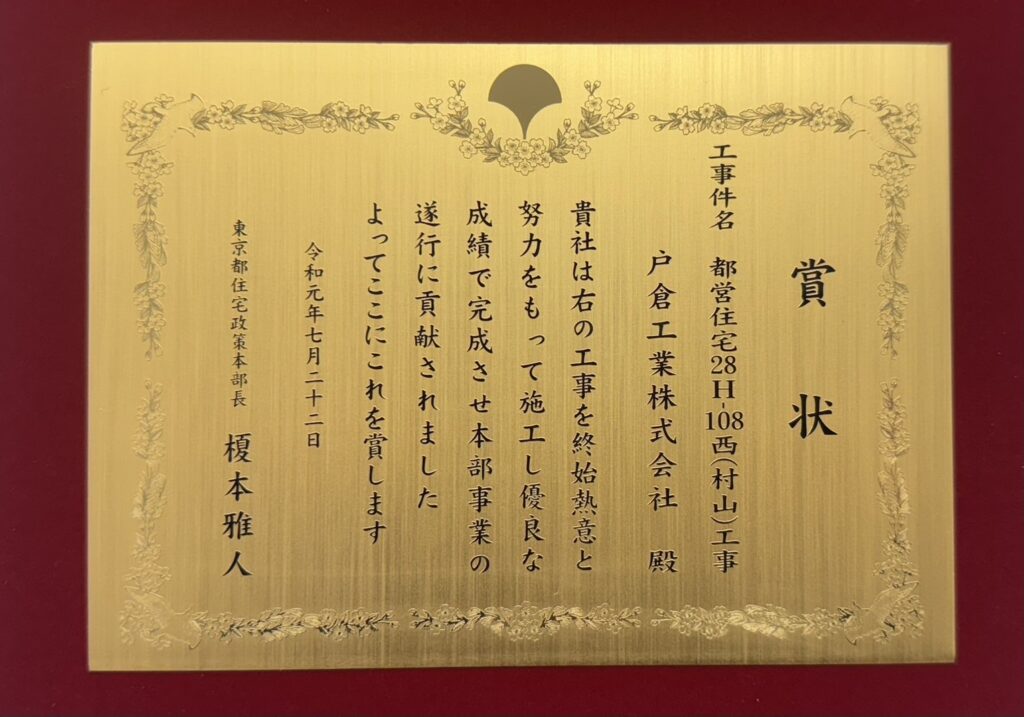 賞状
工事件名　都営住宅28H-108西(村山)工事
戸倉工業株式会社　殿
貴社は右の工事を終始熱意と
努力をもって施工し優良な
成績で完成させ本部事業の
遂行に貢献されました
よってここにこれを賞します
令和元年七月二十二日
東京都住宅政策本部長　榎本雅人